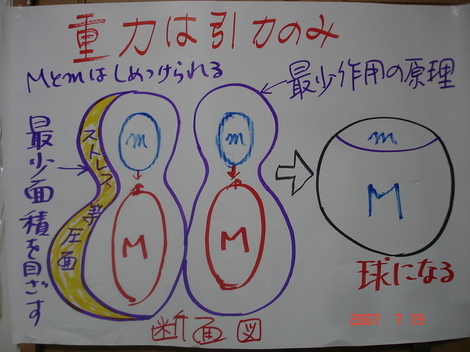 重力は引力のみ
Mとmはしめつけられる
最少作用の原理
最少面積を目ざす
ストレス等圧面
m
M
m
M
m
M
球になる
断面図
2007 7 19